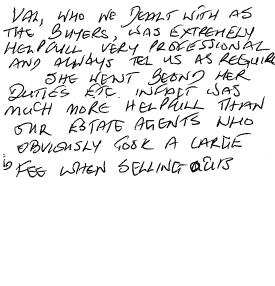 VAL, WHO WE DEALT WITH AS
THE BUYERS, WAS EXTREMELY
HELPFULL VERY PROFESSIONAL
AND ALWAYS TEL US AS REQUIRE
SHE WENT BEOND HER
DUTIES ETC. INFACT WAS
MUCH MORE HELPFULL THAN
OUR ESTATE AGENTS WHO
OBVIOUSLY TOOK A LARGE
FEE WHEN SELLING OURS